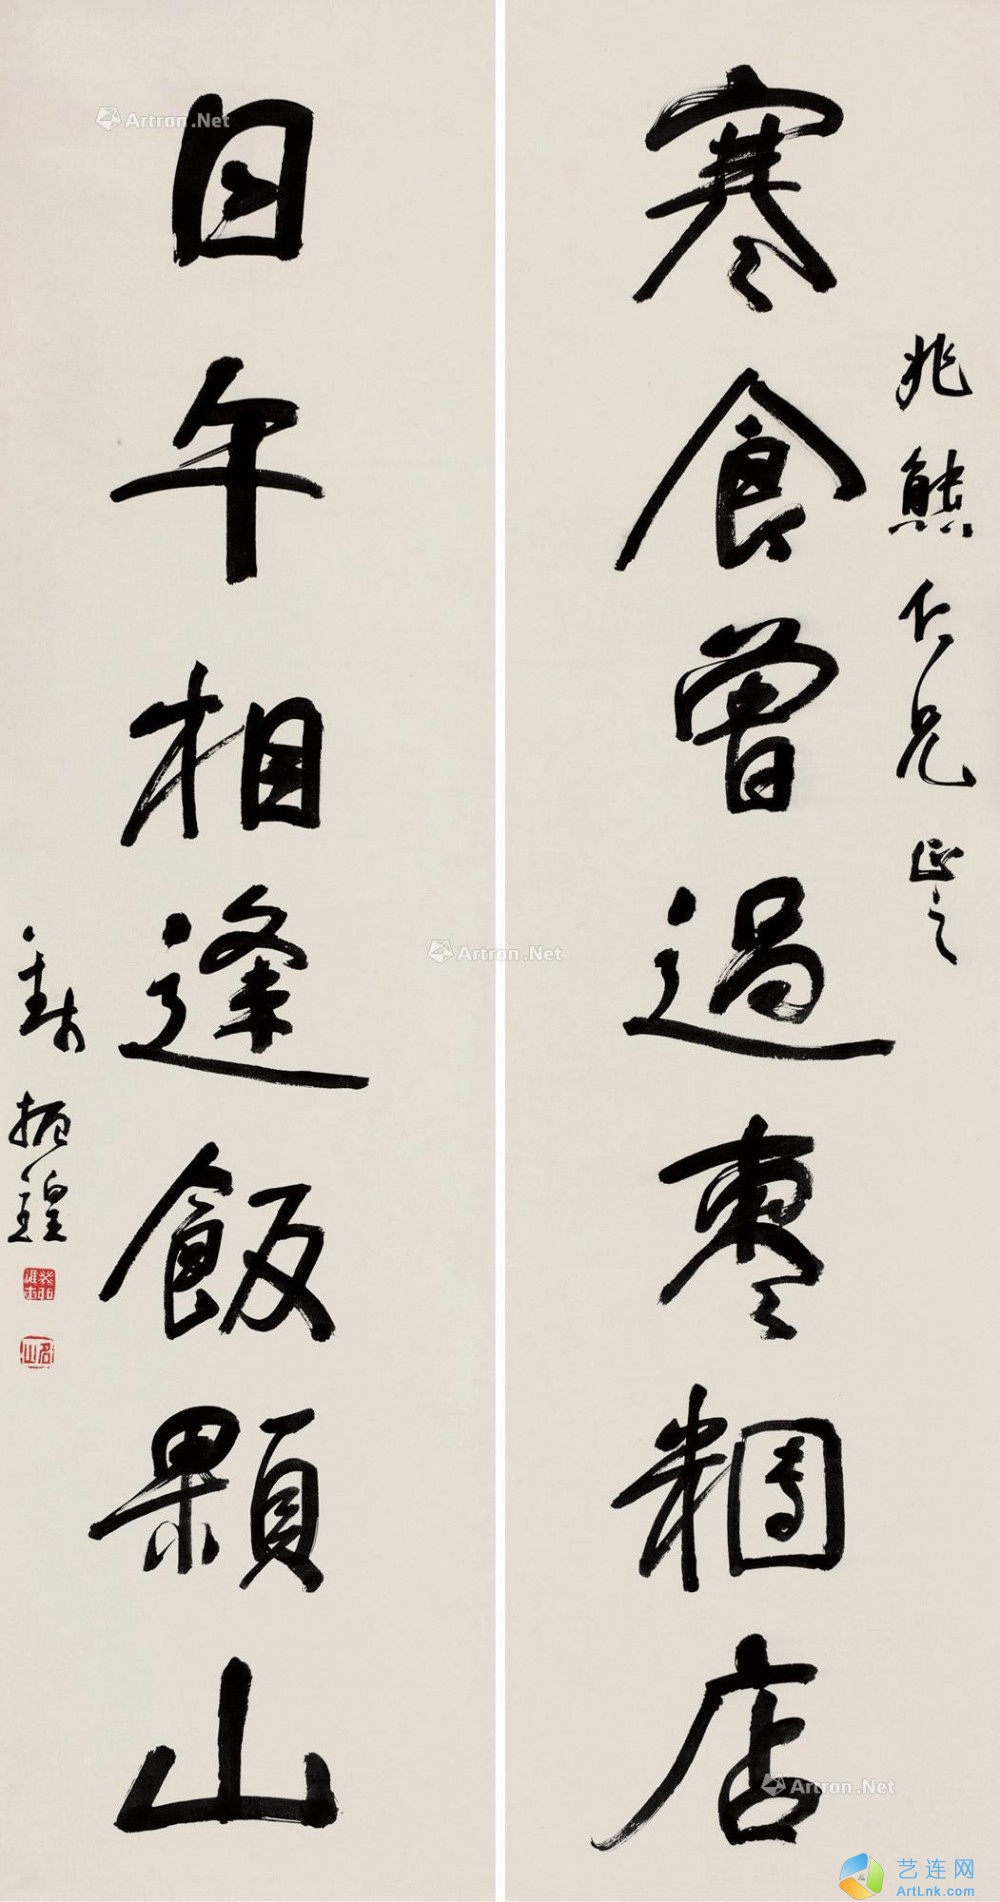 兆熊仁兄正之
寒食曾過棗糰店
日午相逢飯顆山
錢振鍠
名山
Artron.Net
Artron.Net
Artron.Net
艺连网
ArtLnk.com